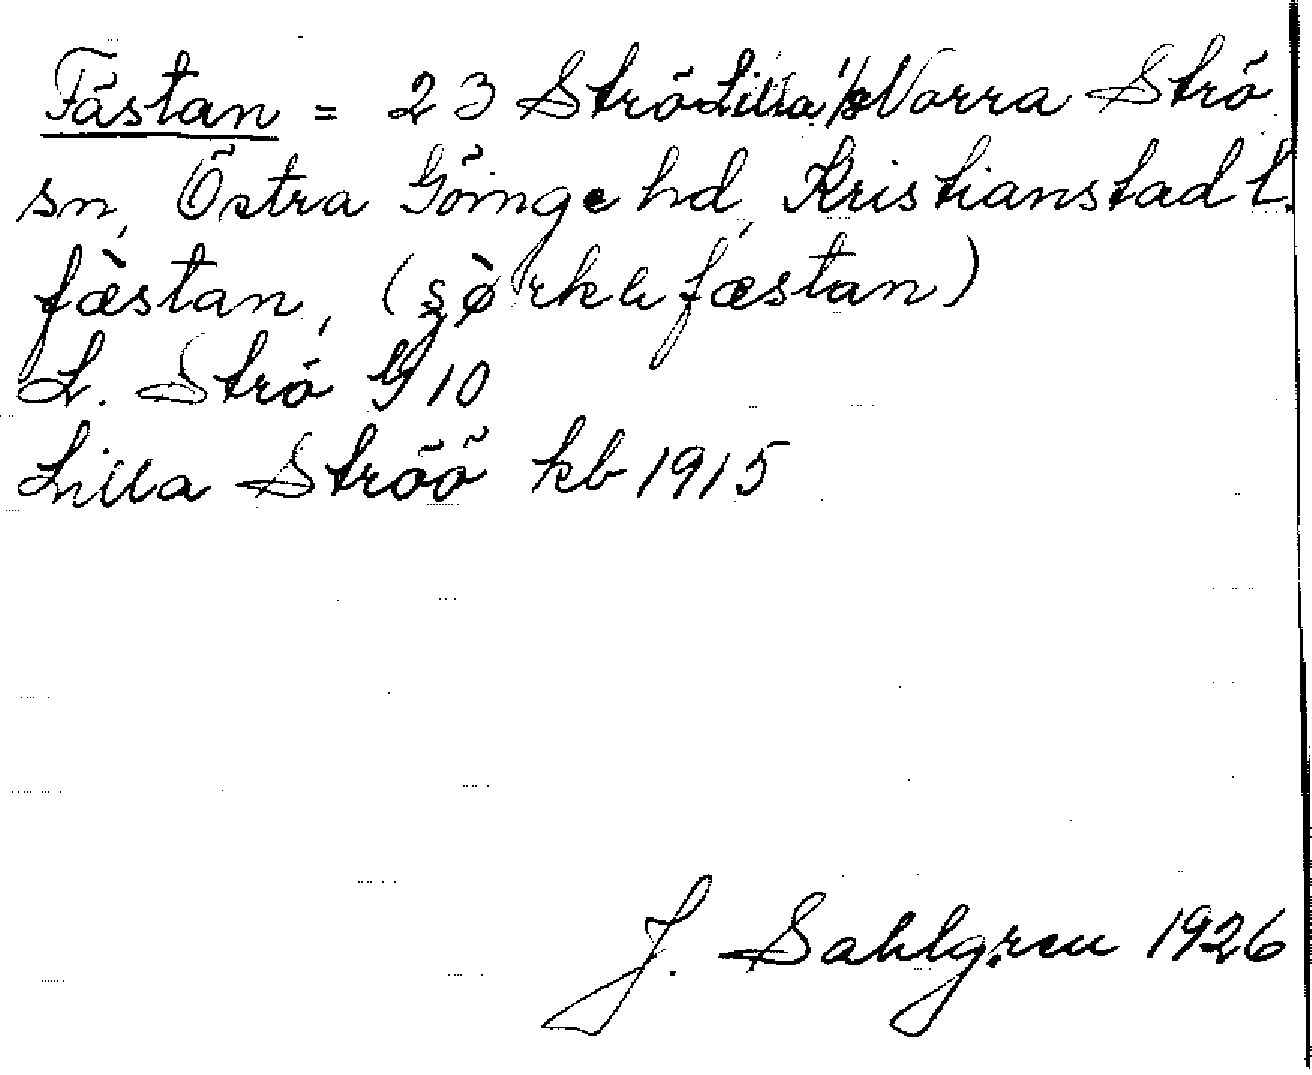 Fästan = 23 Strö Lilla 1/2 Norra Strö
sn, Östra Göinge hd, Kristianstad l.
fæ̀stan, (fæstan)
L. Strö G 10
Lilla Ströö kb 1915
J. Sahlgren 1926